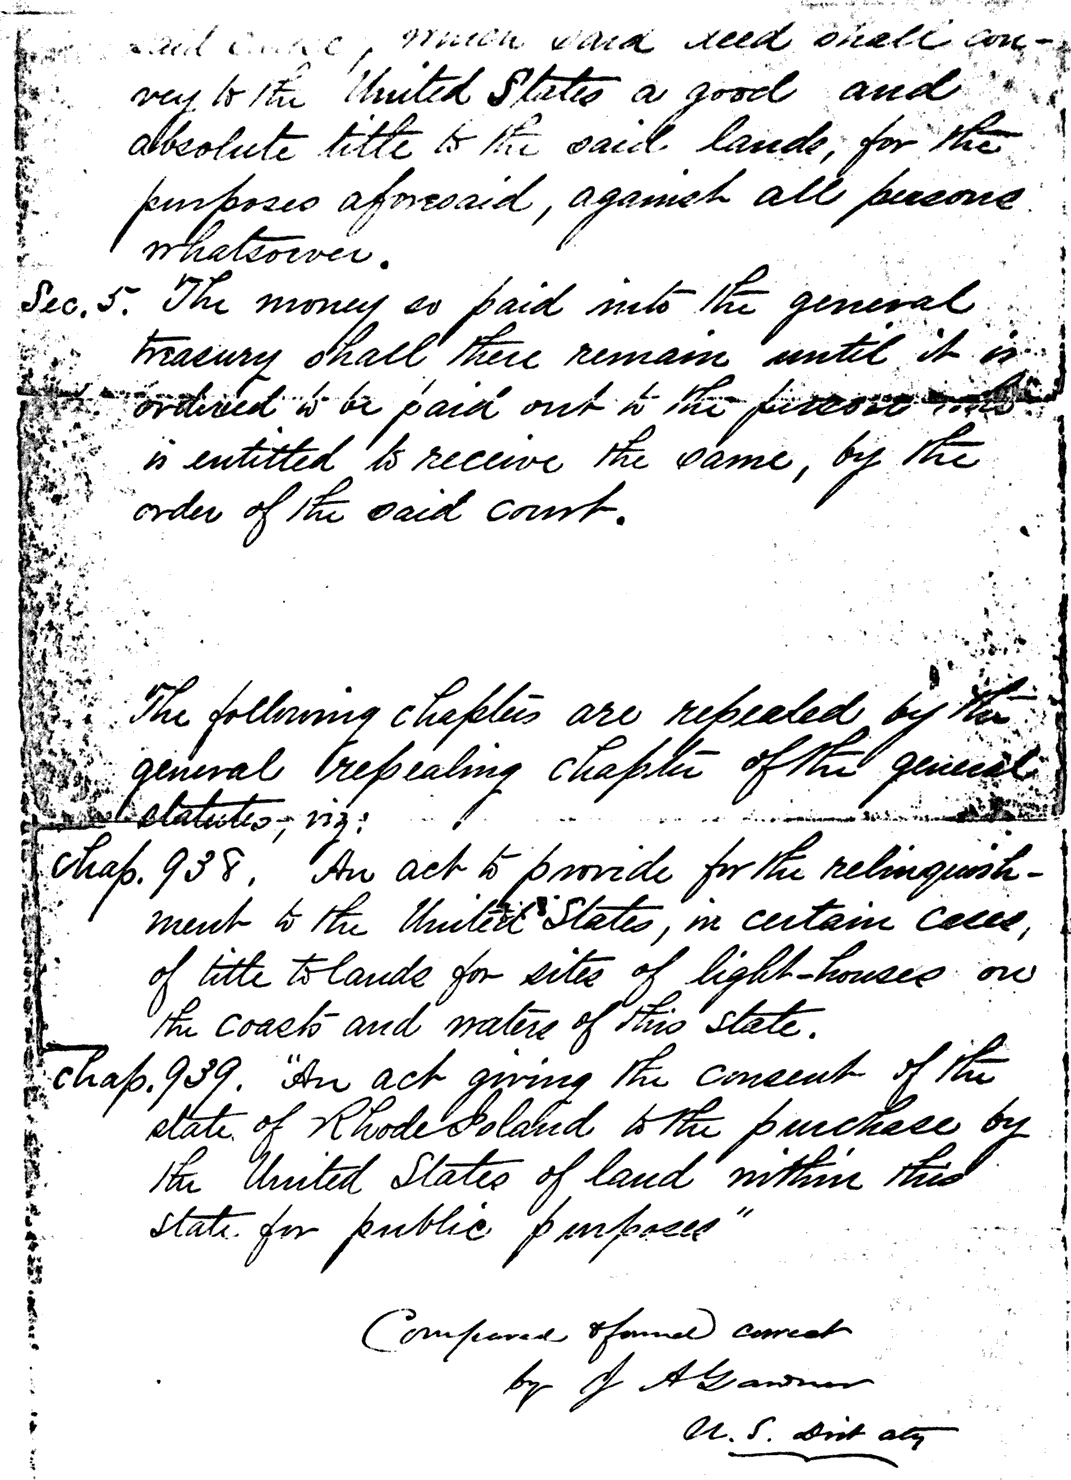 said clerk, which said deed shall con-
vey to the United States a good and
absolute title to the said lands, for the
purposes aforesaid, against all persons
whatsoever.
Sec. 5. The money so paid into the general
treasury shall there remain until it is
ordered to be paid out to the person who
is entitled to receive the same, by the
order of the said court.
The following chapters are repealed by the
general repealing chapter of the general
statutes, viz:
Chap. 938. An act to provide for the relinquish-
ment to the United States, in certain cases,
of title to lands for sites of light-houses on
the coasts and waters of this state.
Chap. 939. "An act giving the consent of the
state of Rhode Island to the purchase by
the United States of land within this
state for public purposes"
Compared & found correct
by J A Gardner
U. S. Dist aty